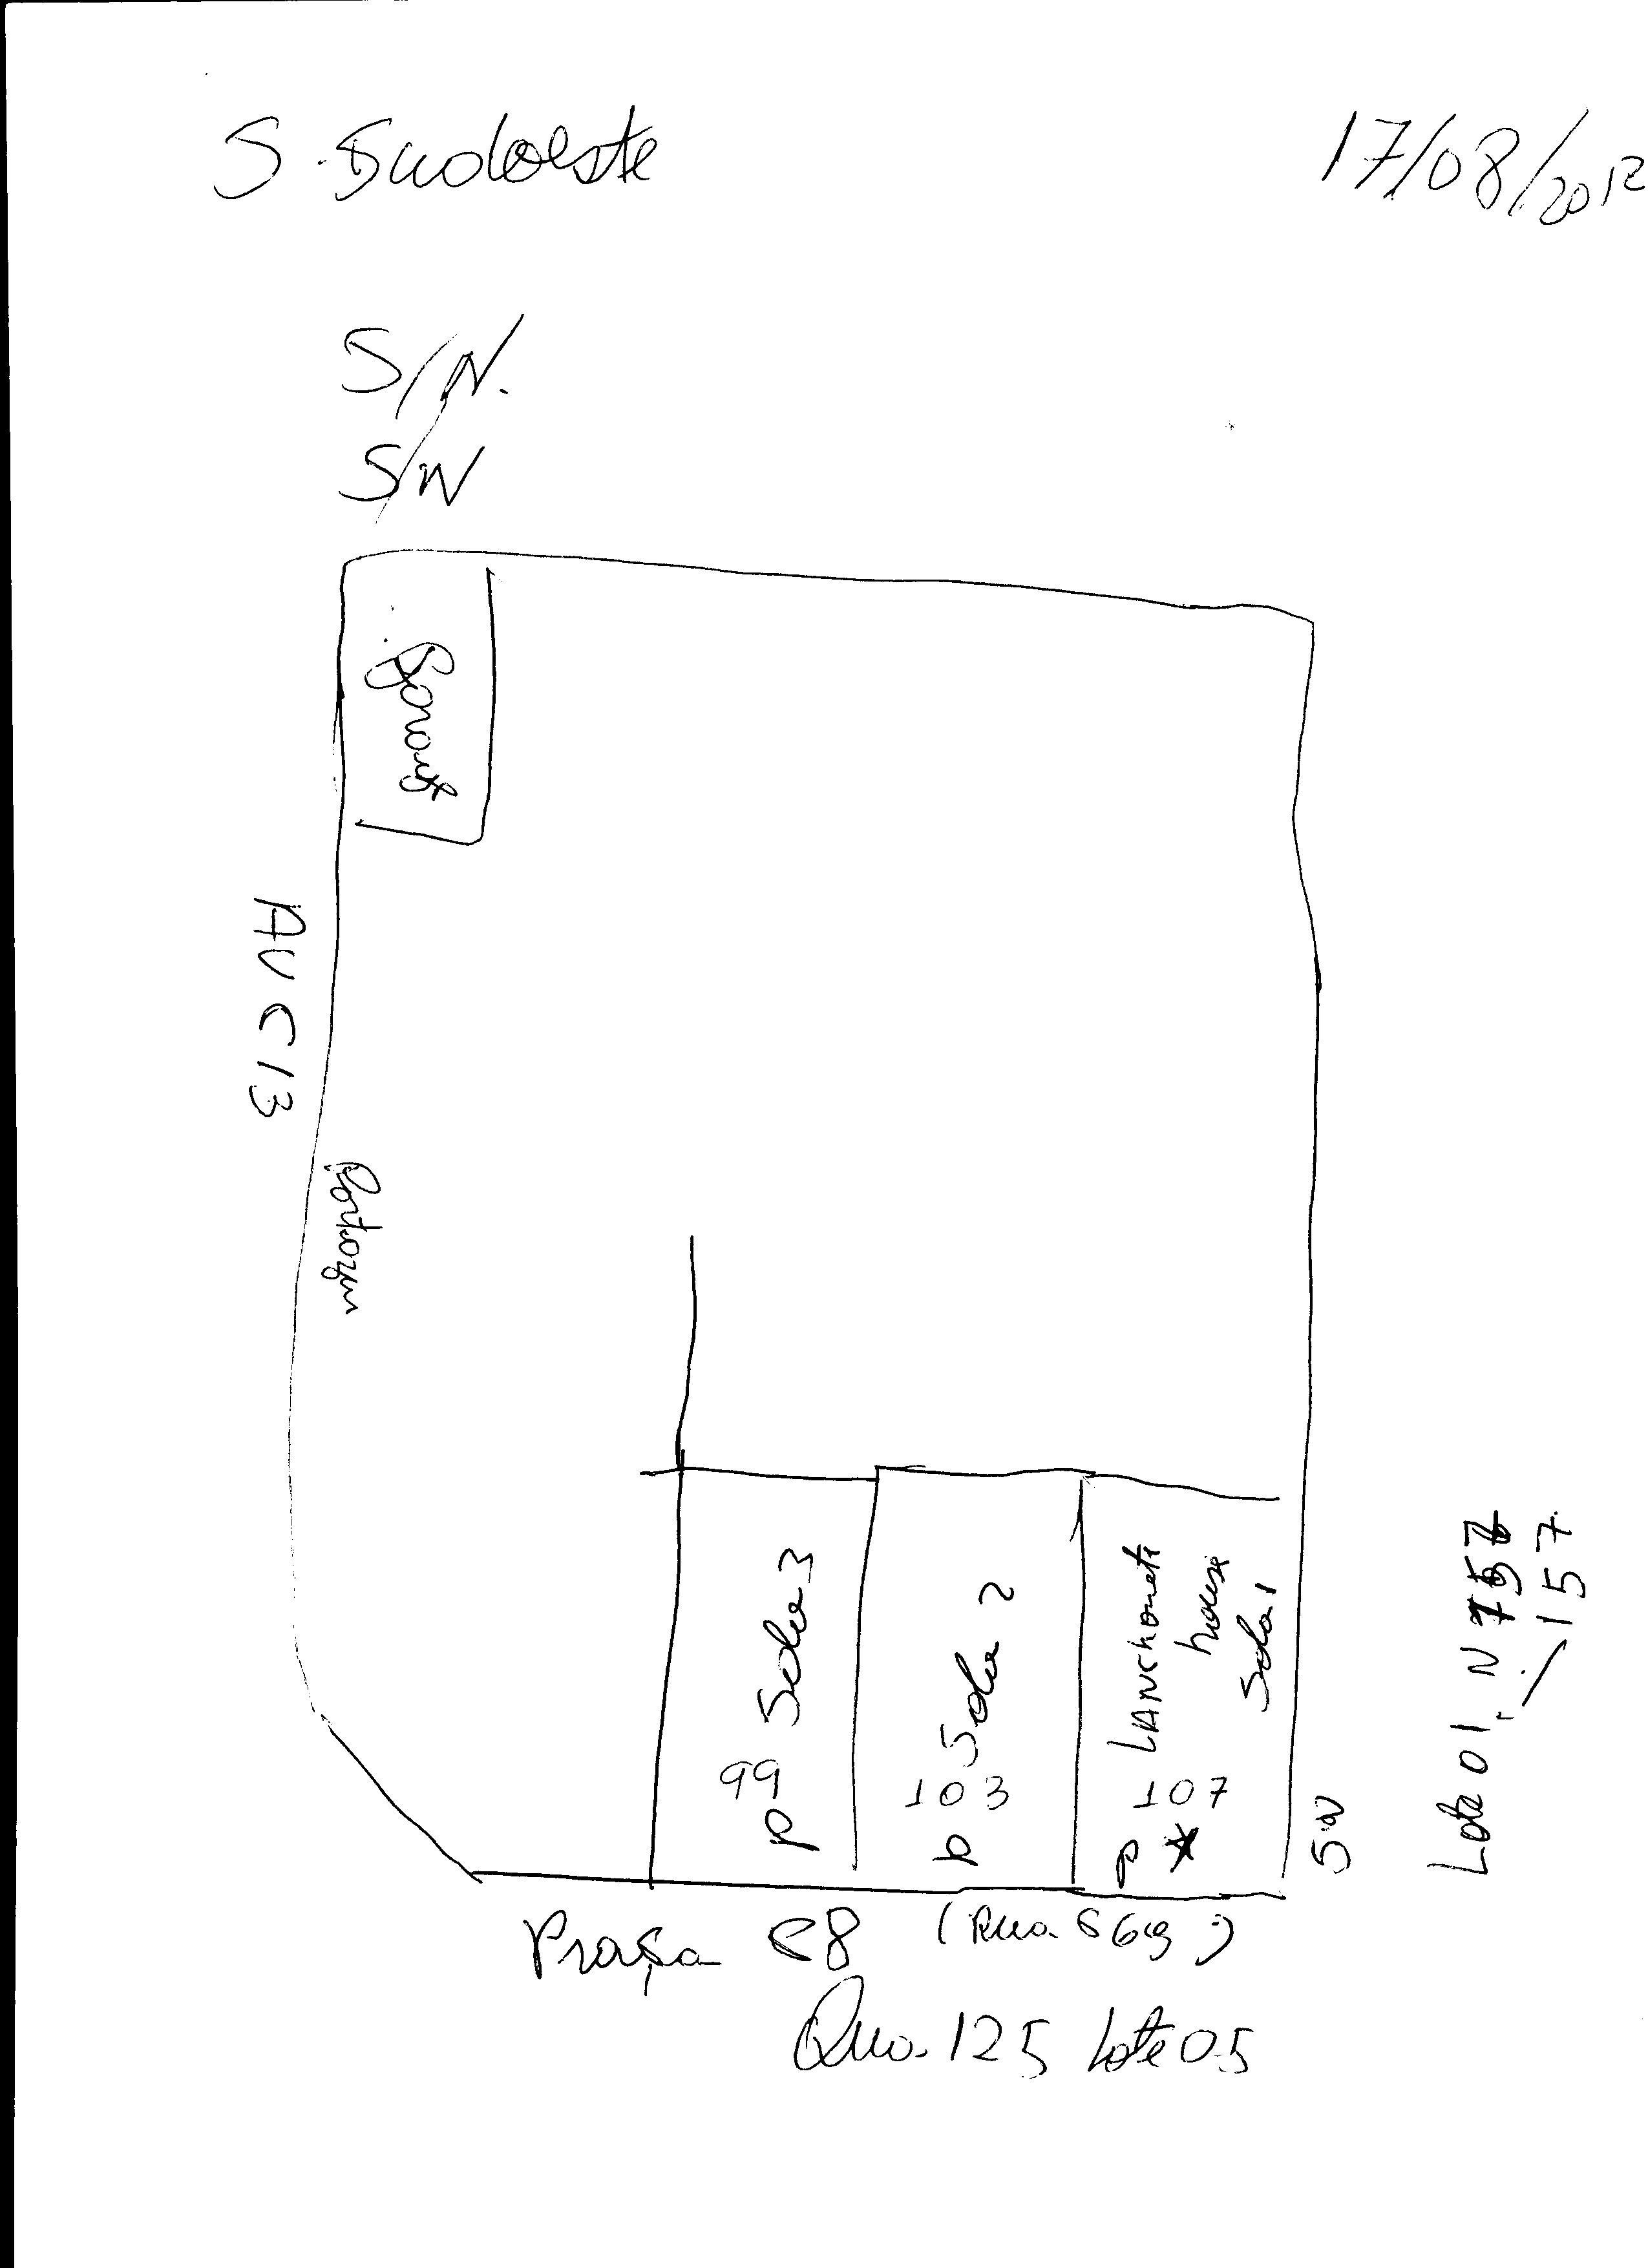 S. Sudoeste
17/08/2012
S/N.
S/N
AV C13
Sala 3
99
P
Sala 2
103
P
Lanchonete
house
Sala 1
107
P
SN
Lote 01, N 157
157
Praça C8
Qua. 125 Lote 05